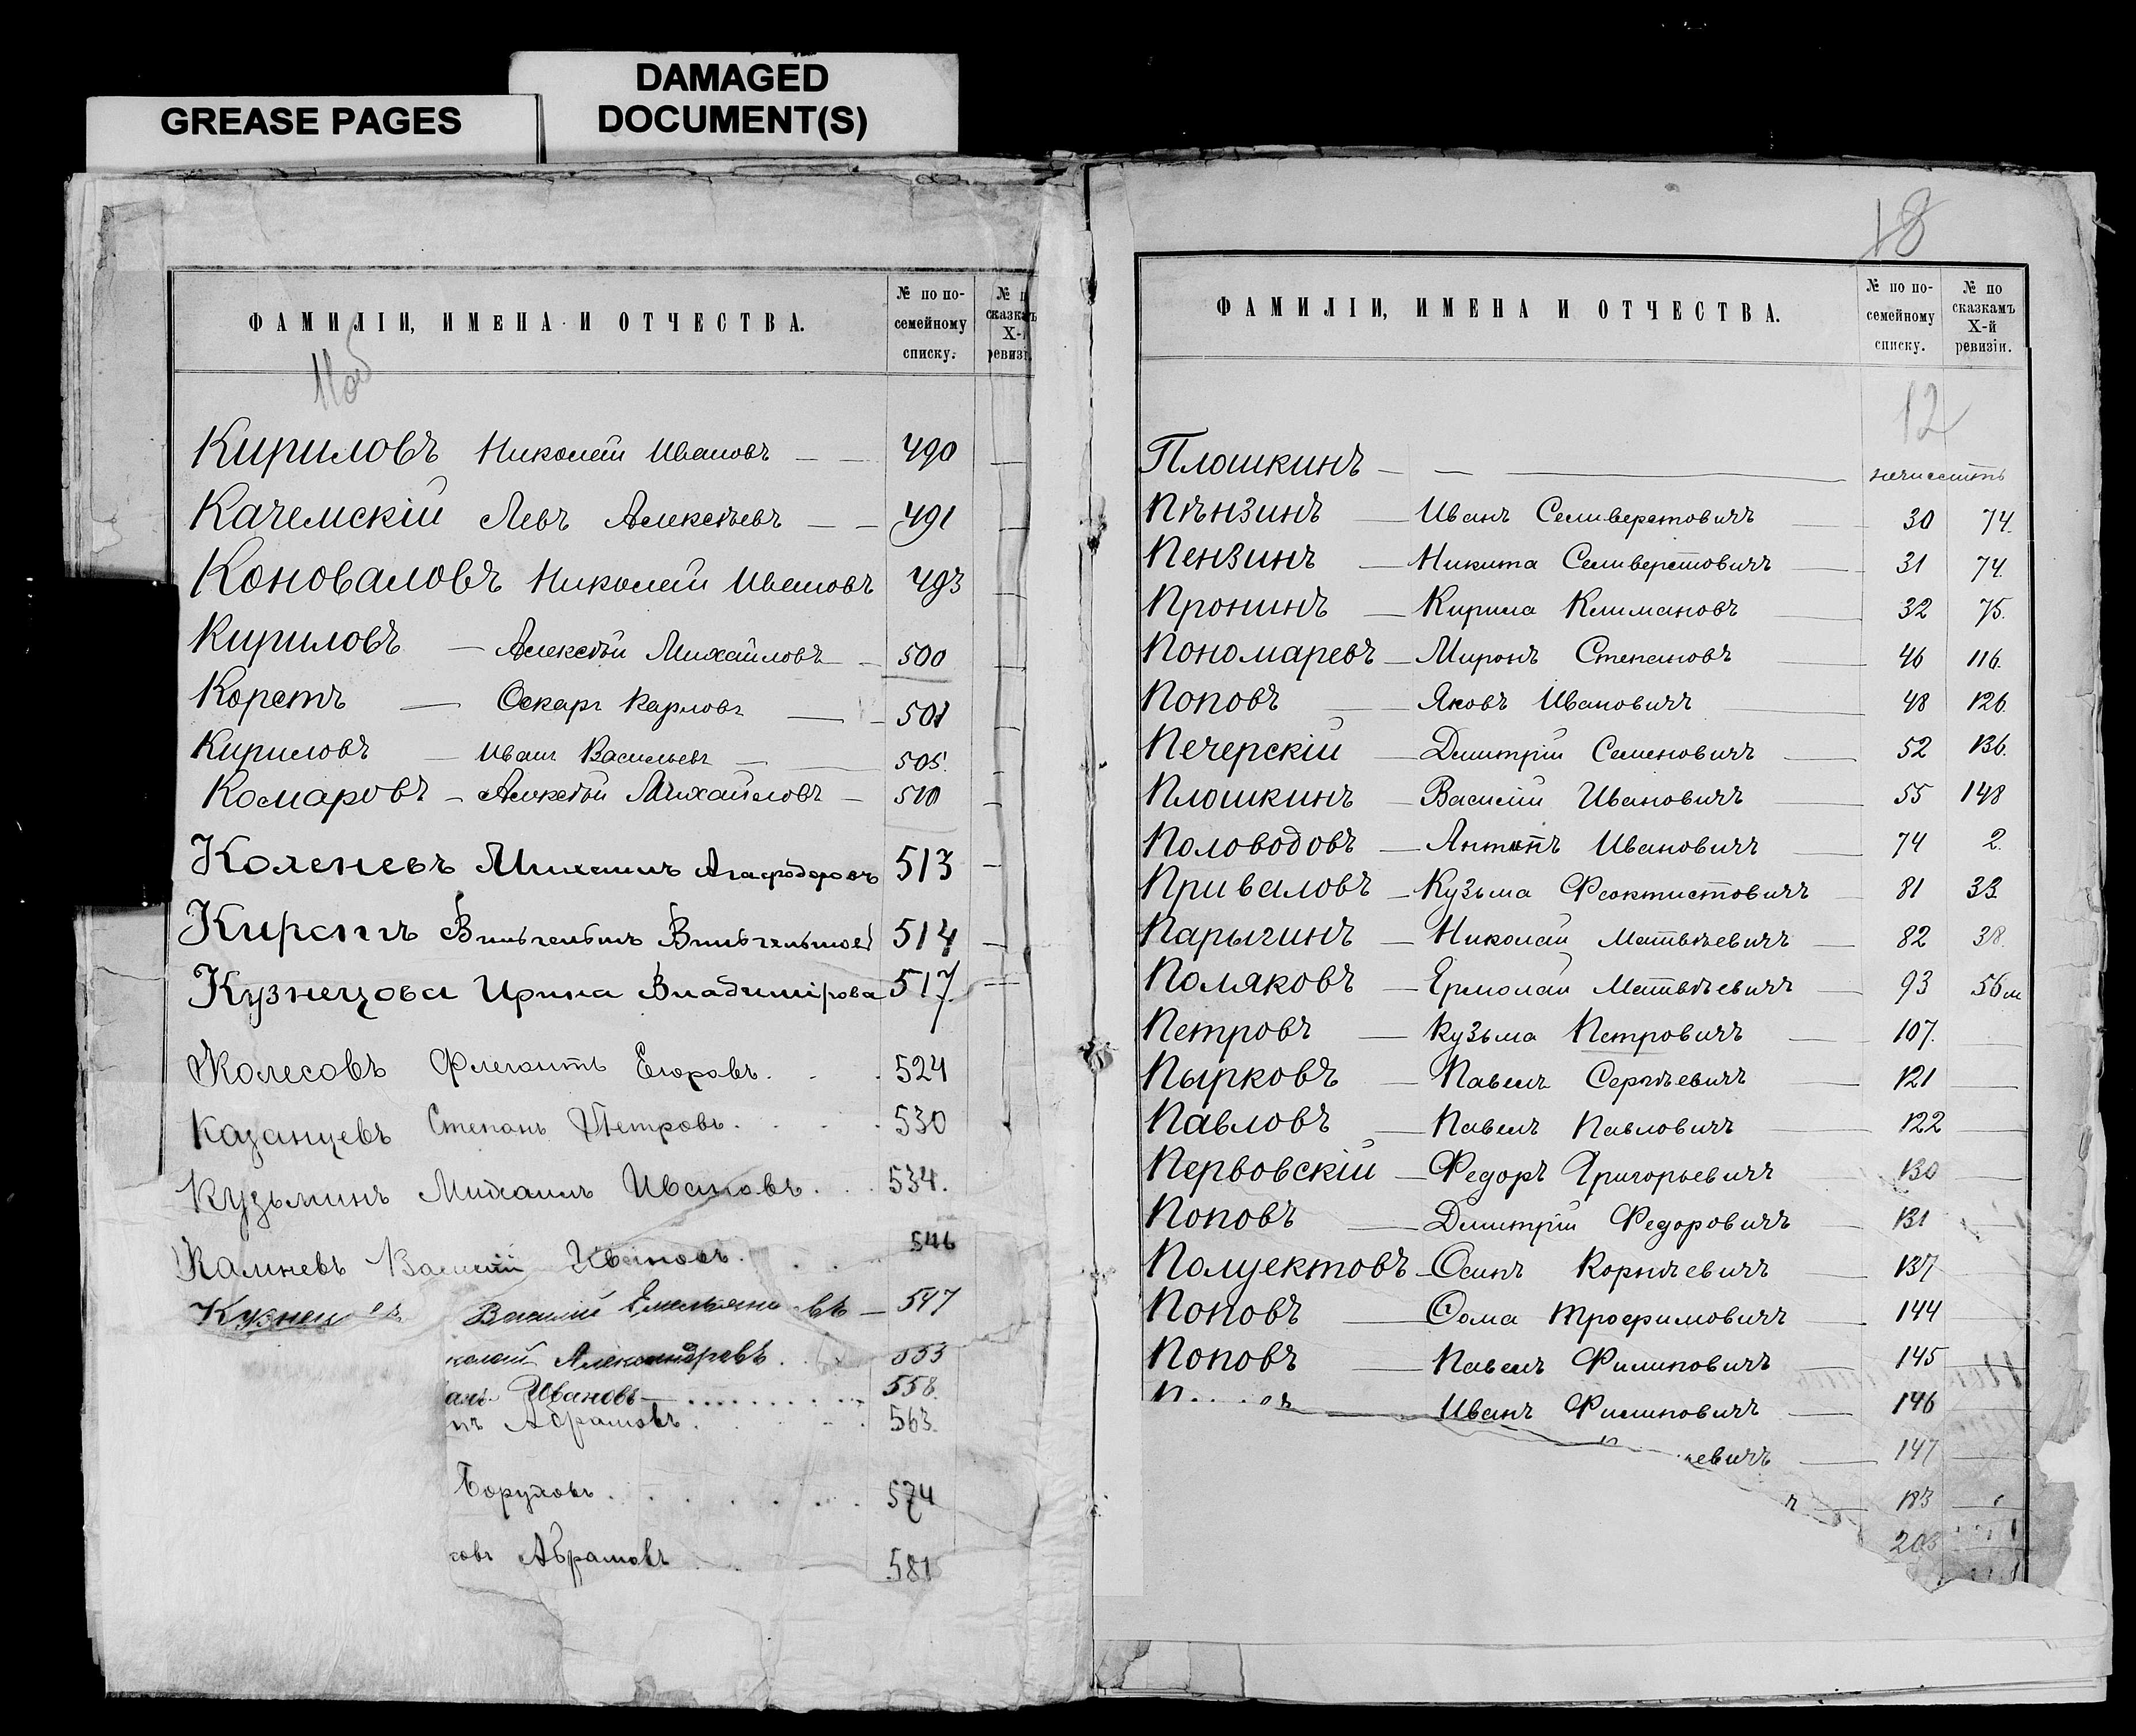 DAMAGED
DOCUMENT(S)
GREASE PAGES
ФАМИЛІИ, ИМЕНА И ОТЧЕСТВА.
№ по по-
семейному
списку.
№ п
сказкамъ
X-й
ревизі
Кириловъ Николай Ивановъ 490
Качемскій Левъ Алексѣевъ 491
Коноваловъ Николай Ивановъ 493
Кириловъ — Алексѣй Михайловъ 500
Корстъ — Оскаръ Карловъ — 501
Кириловъ — Иванъ Васильевъ — 505.
Комаровъ — Алексѣй Михайловъ — 510
Коленевъ Михаилъ Агафодоровъ 513
Кирстъ Вильгельмъ Вильгельмов 514
Кузнецова Ирина Владимірова 517
Колесовъ Флегонтъ Егоровъ. 524
Казанцевъ Степанъ Петровъ. 530
Кузьминъ Михаилъ Ивановъ. 534.
Калневъ Василій Ивановъ. 546
Кузнец въ Василій Емельяно въ — 547
колай Александровъ. 553
Ивановъ 558.
Абрамовъ. 563.
Боруховъ. 574
Абрамовъ 581
18
ФАМИЛІИ, ИМЕНА И ОТЧЕСТВА.
№ по по-
семейному
списку.
№ по
сказкамъ
X-й
ревизіи.
12
Плошкинъ — —
Пѣнзинъ — Иванъ Селиверстовичъ 30 74.
Пензинъ — Никита Селиверстовичъ — 31 74.
Пронинъ — Кирила Климановъ — 32 75.
Пономаревъ — Миронъ Степановъ — 46 116.
Поповъ — Яковъ Ивановичъ — 48 126.
Печерскій — Дмитрій Семеновичъ — 52 136.
Плошкинъ — Василій Ивановичъ — 55 148
Половодовъ — Антонъ Ивановичъ — 74 2.
Приваловъ — Кузьма Феоктистовичъ — 81 33
Парыгинъ — Николай Матвѣевичъ — 82 38.
Поляковъ — Ермолай Матвѣевичъ — 93 56
Петровъ — Кузьма Петровичъ — 107. —
Пырковъ — Павелъ Сергѣевичъ — 121 —
Павловъ — Павелъ Павловичъ — 122 —
Первовскій — Федоръ Григорьевичъ — 130 —
Поповъ — Дмитрій Федоровичъ — 131 —
Полуектовъ — Осипъ Корнѣевичъ — 137
Поповъ — Ѳома Трофимовичъ — 144
Поповъ — Павелъ Филиповичъ — 145 —
П въ — Иванъ Филиповичъ — 146
евичъ — 147
ъ — 183 —
203